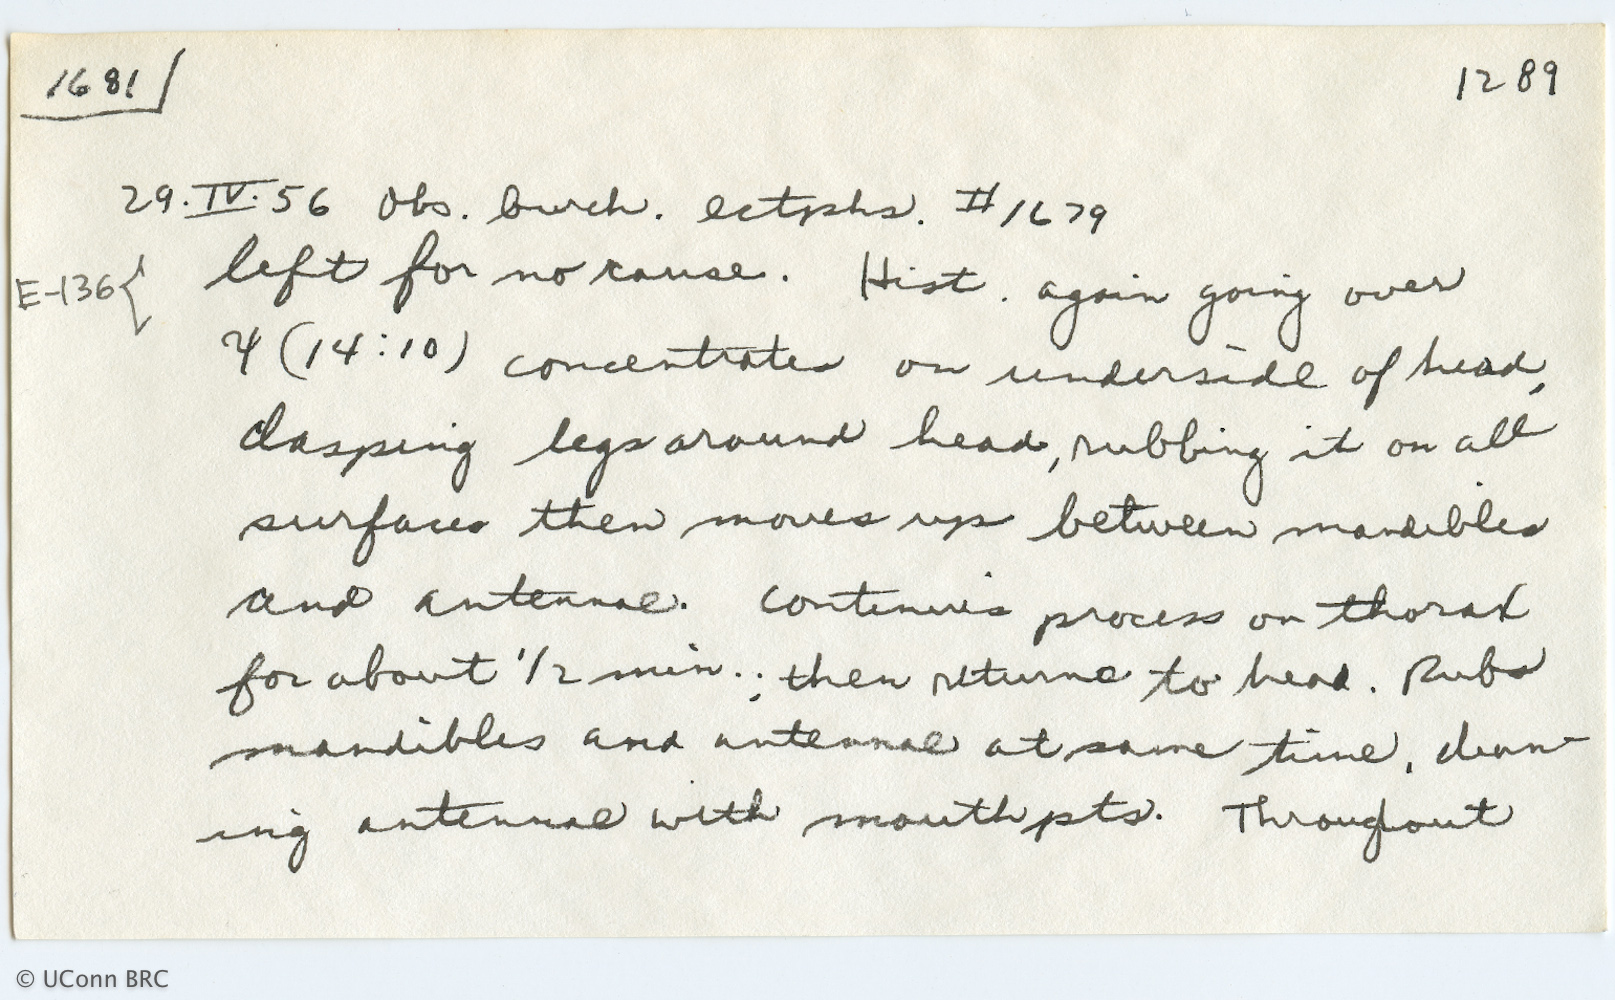 1681 1289
29.IV.56 Obs. burch. ectphs. #1679
E-136{ left for no cause. Hist. again going over
4 (14:10) concentrates on underside of head,
clasping legs around head, rubbing it on all
surfaces then moves up between mandibles
and antennae. Continues process on thorax
for about 1/2 min.; then returns to head. Rubs
mandibles and antennae at same time, clean-
ing antennae with mouth pts. Throughout
© UConn BRC